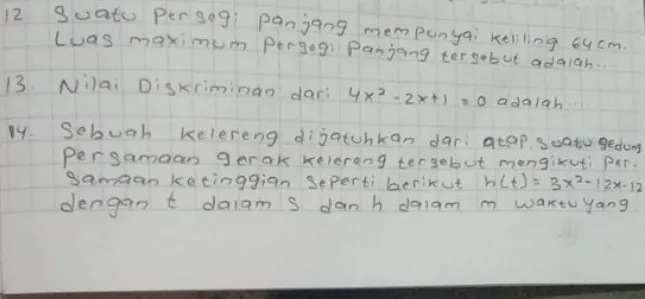 12 Suatu persegi panjang mempunyai keliling 64 cm.
Luas maximum persegi panjang tersebut adalah...
13. Nilai Diskriminan dari 4x² - 2x + 1 = 0 adalah....
14. Sebuah kelereng dijatuhkan dari atap suatu gedung
persamaan gerak kelereng tersebut mengikuti per-
samaan ketinggian seperti berikut h(t) = 3x² - 12x - 12
dengan t dalam s dan h dalam m waktu yang